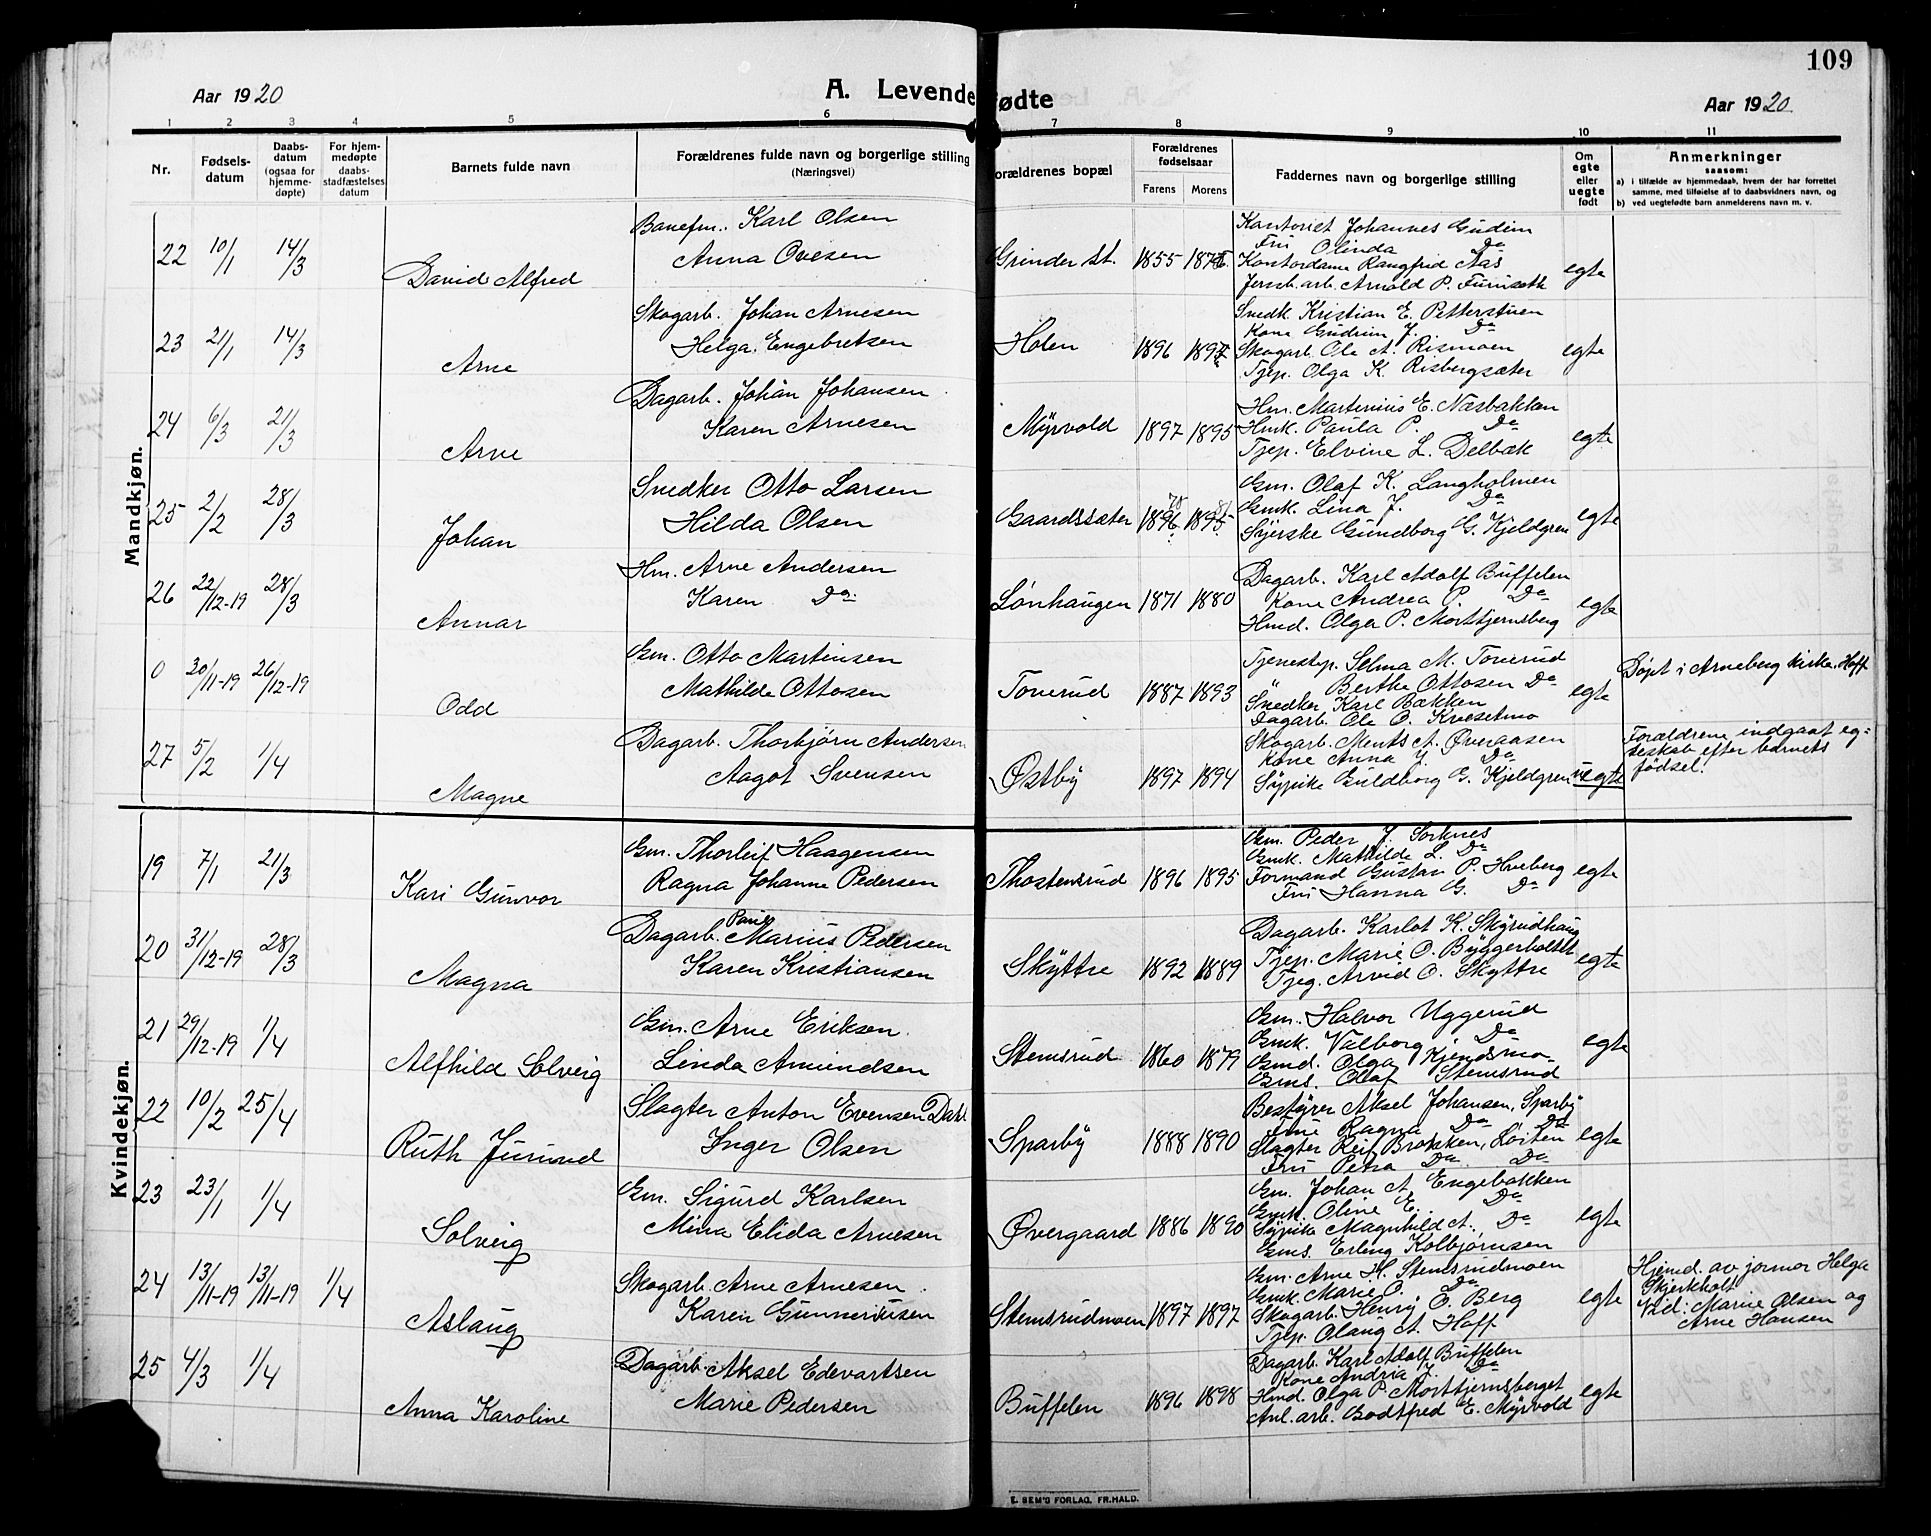 109
Aar 1920 A. Levendefødte Aar 1920.
1 2 3 4 5 6 7 8 9 10 11
Nr. Fødsels-datum Daabs-datum (ogsaa for hjemme-døpte) For hjem-medøpte daabs-stadfæstelses datum Barnets fulde navn Forældrenes fulde navn og borgerlige stilling (Næringsvei) Forældrenes bopæl Forældrenes fødselsaar Farens Morens Faddernes navn og borgerlige stilling Om egte eller uegte født Anmerkninger saasom:
a) i tilfælde av hjemmedaab, hvem der har forrettet samme, med tilføielse af to daabsvidners navn, og
b) ved uegtefødte barn anmelderens navn m. v.
Mandkjøn.
22 10/1 14/3 David Alfred
Banefm. Karl Olsen
Anna Ovesen
Grinder st. 1855
Kontorist Johannes Gudim
Fru Olinda Do
Kontordame Rangfrid Aas
Jernb.arb. Arnold P. Furuseth
egte
23 21/1 14/3 Arne
Skogarb. Johan Arnesen
Helga Engebretsen
Holen 1896
Snedk. Kristian E. Petterstuen
Kone Gudrun J. Do
Skogarb. Ole A. Rismoen
Tjep. Olga K. Risbergsæter
egte
24 6/3 21/3 Arne
Dagarb. Johan Johansen
Karen Arnesen
Myrvold 1897 1895
Hm. Martenius E. Næsbakken
Hmk. Paula P. Do
Tjep. Elvine L. Delbæk
egte
25 2/2 28/3 Johan
Snedker Otto Larsen
Hilda Olsen
Gaardssæter 1896 1895
Gm. Olaf K. Langholmen
Gmk. Lina J. Do
Syerske Gundborg G. Kjeldgren
egte
26 22/12-19 28/3 Annar
Hm. Arne Andersen
Karen Do.
Lønhaugen 1871 1880
Dagarb. Karl Adolf Buffelen
Kone Andrea P. Do
Hmd. Olga P. Morttjernsberg
egte
0 30/11-19 26/12-19 Odd
Gm. Otto Martinsen
Mathilde Ottosen
Toverud 1887 1893
Tjenestep. Selma M. Toverud
" Berthe Ottosen Do
Snedker Karl Bækken
Dagarb. Ole O. Kvesetmo
egte
Døpt i Arneberg kirke, Hoff
27 5/2 1/4 Magne
Dagarb. Thorbjørn Andersen
Aagot Svensen
Østby 1897 1894
Skogarb. Ments A. Øveraasen
Kone Anna J. Do
Sypike Guldborg G. Kjeldgren
uegte
Forældrene indgaat eg-
teskab efter barnets
fødsel.
Kvindekjøn.
19 7/1 21/3 Kari Gunvor
Gm. Thorleif Haagensen
Ragna Johanne Pedersen
Thostensrud 1896 1895
Gm. Peder J. Sorknes
Gmk. Mathilde L. Do
Formand Gustav P. Hveberg
Fru Hanna G. Do
egte
20 31/12-19 28/3 Magna
Dagarb. Marius Pedersen
Karen Kristiansen
Skyttre 1892 1889
Dagarb. Karlot K. Skyrudhaug
Tjep. Marie O. Byggerholtet
Tjeg. Arvid O. Skyttre
egte
21 29/12-19 1/4 Alfhild Solveig
Gm. Arne Eriksen
Linda Amundsen
Stemsrud 1860 1879
Gm. Halvor Uggerud
Gmk. Valborg Do
Gmd. Olga Kjendsmo
Gms. Olaf Stemsrud
egte
22 10/2 25/4 Ruth Jurund
Slagter Anton Evensen Dahl
Inger Olsen
Sparby 1888 1890
Bestyrer Aksel Johansen, Sparby
Frue Ragna Do Do
Slagter Leif Brokken, Løiten
Fru Petra Do Do
egte
23 23/1 1/4 Solveig
Gm. Sigurd Karlsen
Mina Elida Arnesen
Øvergaard 1886 1890
Gm. Johan A. Engebakken
Gmk. Oline E. Do
Sypike Magnhild A. Do
Gms. Erling Kolbjørnsen
egte
24 13/11-19 13/11-19 1/4 Aslaug
Skogarb. Arne Arnesen
Karen Gunneriusen
Stemsrudmoen 1897 1897
Gm. Arne H. Stemsrudmoen
Gmk. Marie O. Do
Skogarb. Henry O. Berg
Tjep. Olaug A. Hoff
egte
Hjemd. av jormor Helga
Skjerkholt
Vid: Marie Olsen og
Arne Hansen
25 4/3 1/4 Anna Karoline
Dagarb. Aksel Edevartsen
Marie Pedersen
Buffelen 1896 1898
Dagarb. Karl Adolf Buffelen
Kone Andria J. Do
Hmd. Olga P. Morttjernsberget
Anl.arb. Godtfred E. Myrvold
egte
E. SEM'S FORLAG, FR.HALD.